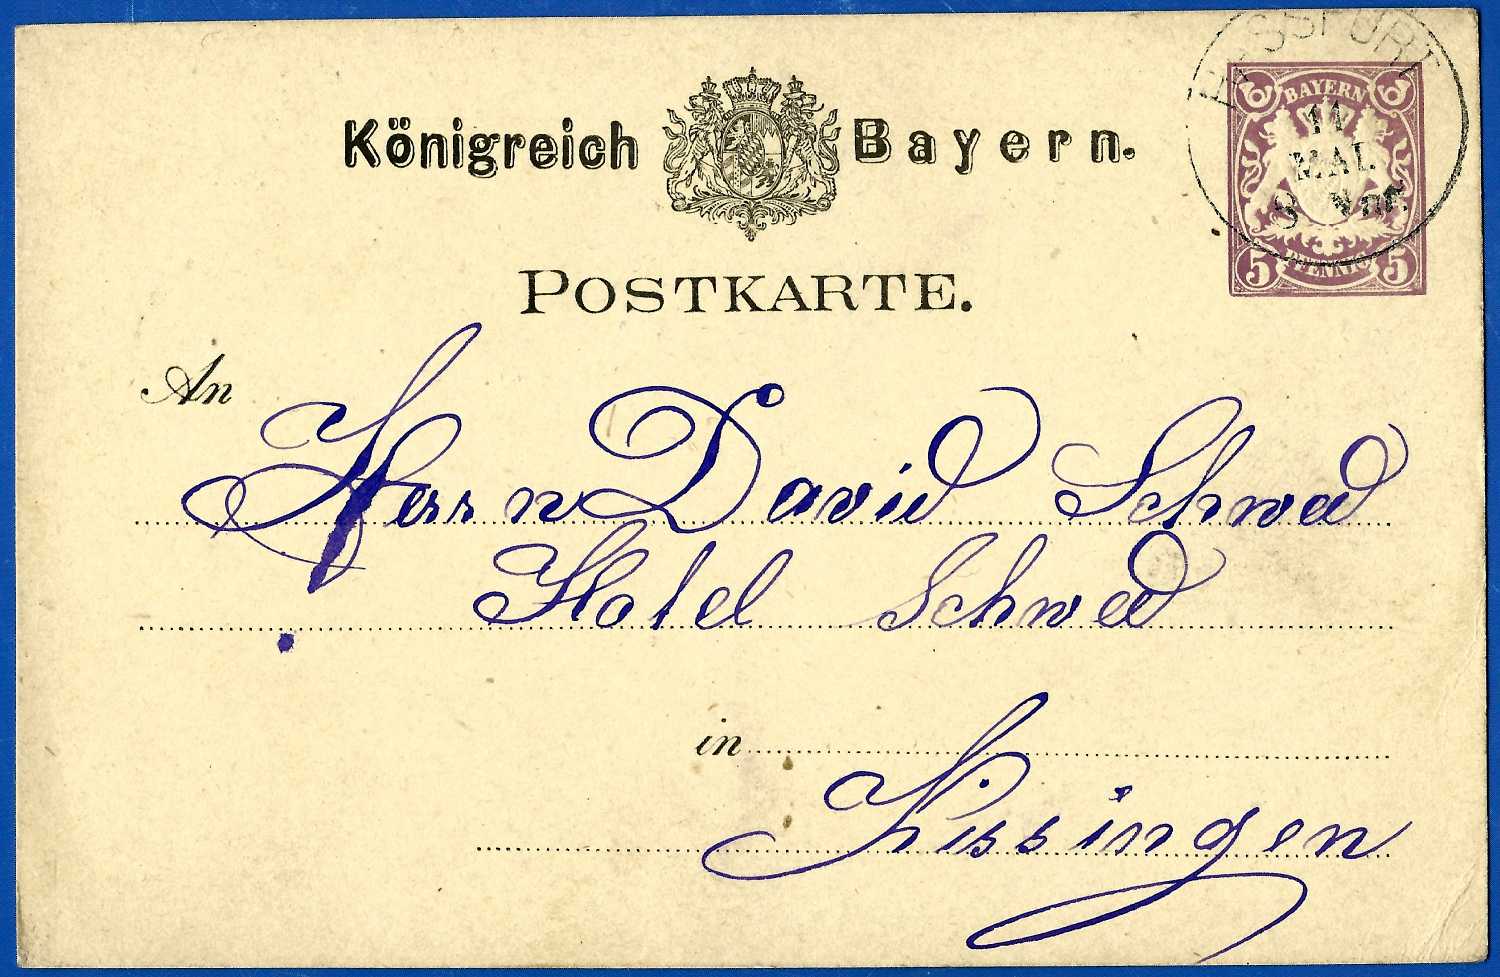 Königreich Bayern.
HASSFURT
11
MAI.
8 Vor.
6 BAYERN 6
5 PFENNIG 5
POSTKARTE.
An Herrn David Schwed
Hotel Schwed
in
Kissingen